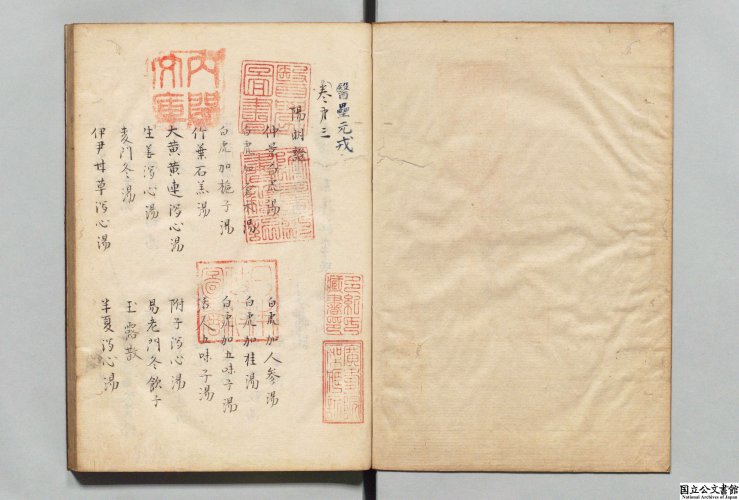 醫壘元戎
卷第三
陽明證
仲景白虎湯
白虎加人參湯
白虎加蒼朮湯
白虎加桂湯
白虎加梔子湯
白虎加五味子湯
竹葉石羔湯
杏人五味子湯
大黃黃連瀉心湯
附子瀉心湯
生姜瀉心湯
易老門冬飲子
麦門冬湯
玉露散
伊尹甘草瀉心湯
半夏瀉心湯
內閣文庫
多紀氏藏書印
國立公文書館
National Archives of Japan